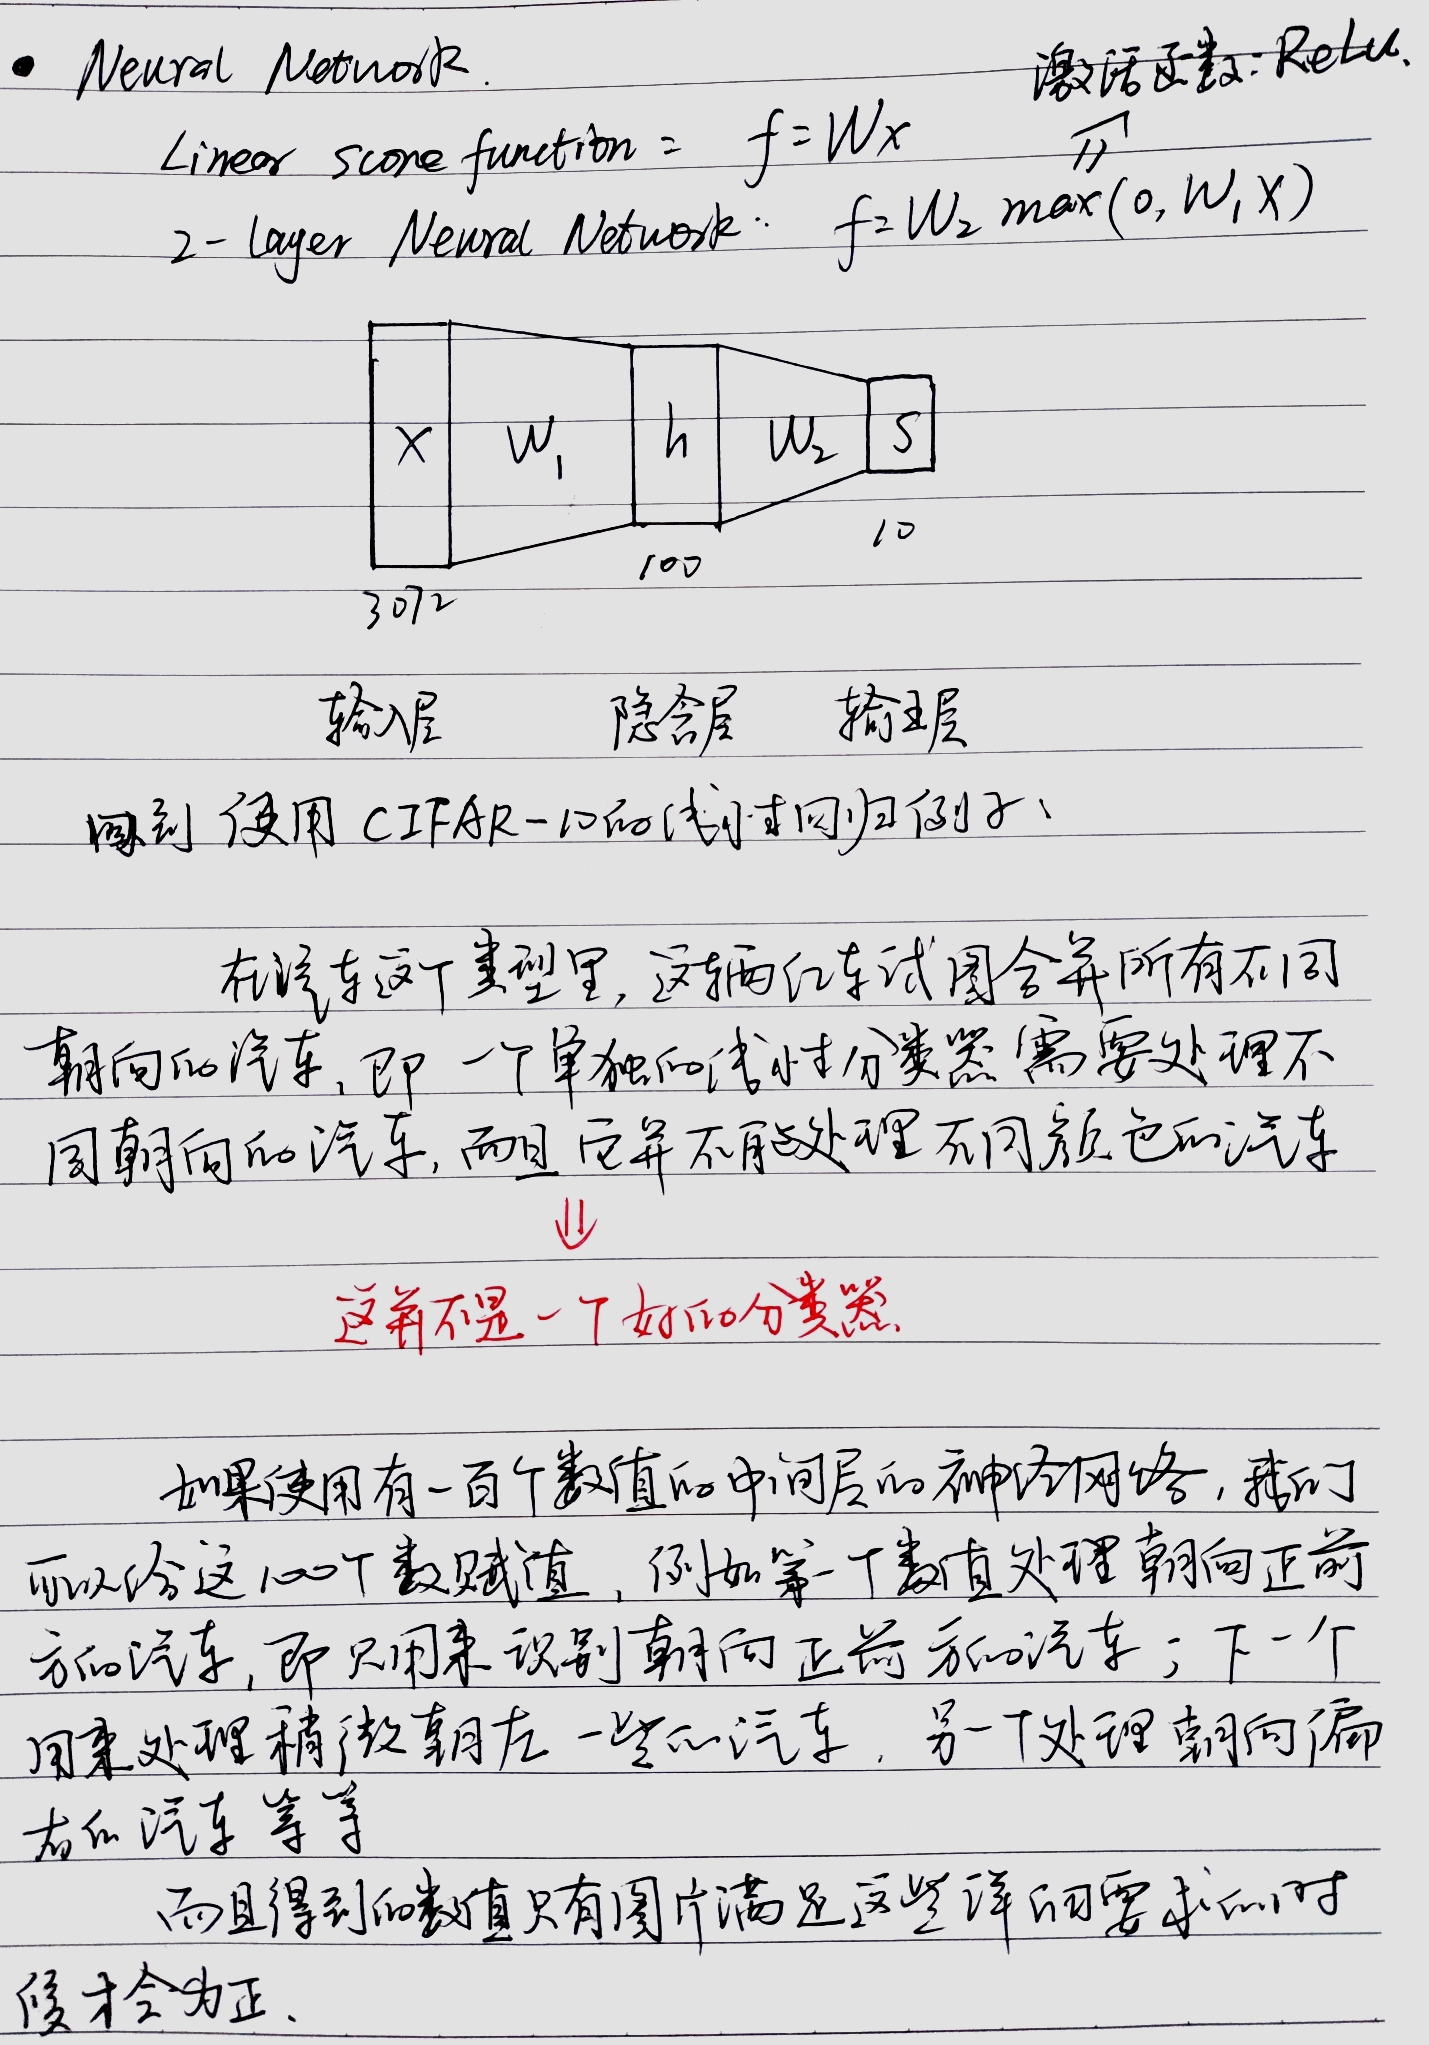 • Neural Network.
激活函数: ReLu.
Linear score function: f=Wx
⇑
2-layer Neural Network: f=W₂ max(0, W₁X)
X W₁ h W₂ S
10
100
3072
输入层 隐含层 输出层
回到使用CIFAR-10的线性回归例子、
在汽车这个类型里, 这辆红车试图合并所有不同
朝向的汽车, 即 一个单独的线性分类器需要处理不
同朝向的汽车, 而且它并不能处理不同颜色的汽车
⇓
这并不是一个好的分类器.
如果使用有一百个数值的中间层的神经网络, 我们
可以给这100个数赋值, 例如第一个数值处理朝向正前
方的汽车, 即只用来识别朝向正前方的汽车; 下一个
用来处理稍微朝左一些的汽车, 另一个处理朝向偏
右的汽车等等
而且得到的数值只有图片满足这些详细要求的时
候才会为正.